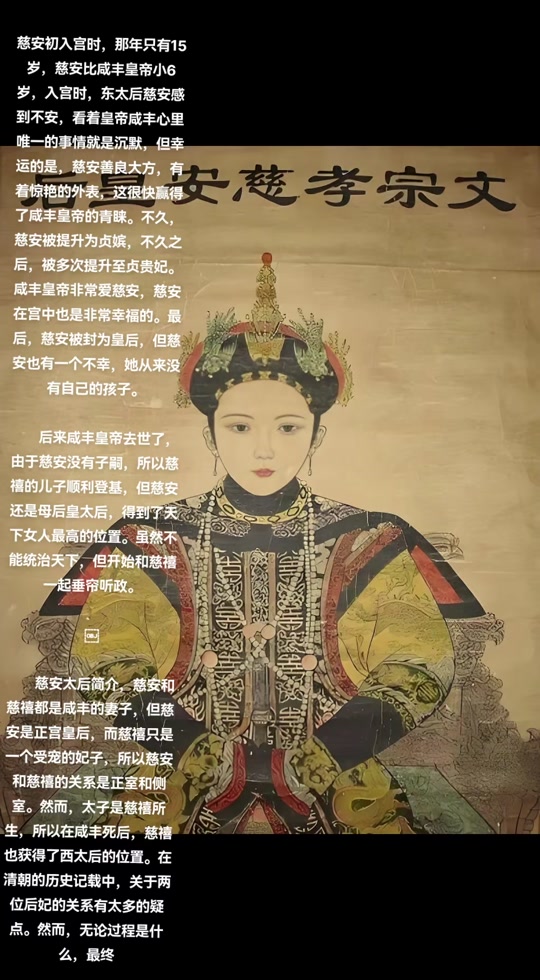 慈安初入宫时，那年只有15
岁，慈安比咸丰皇帝小6
岁，入宫时，东太后慈安感
到不安，看着皇帝咸丰心里
唯一的事情就是沉默，但幸
运的是，慈安善良大方，有
着惊艳的外表，这很快赢得
了咸丰皇帝的青睐。不久，
慈安被提升为贞嫔，不久之
后，被多次提升至贞贵妃。
咸丰皇帝非常爱慈安，慈安
在宫中也是非常幸福的。最
后，慈安被封为皇后，但慈
安也有一个不幸，她从来没
有自己的孩子。
后来咸丰皇帝去世了，
由于慈安没有子嗣，所以慈
禧的儿子顺利登基，但慈安
还是母后皇太后，得到了天
下女人最高的位置。虽然不
能统治天下，但开始和慈禧
一起垂帘听政。
OBJ
慈安太后简介，慈安和
慈禧都是咸丰的妻子，但慈
安是正宫皇后，而慈禧只是
一个受宠的妃子，所以慈安
和慈禧的关系是正室和侧
室。然而，太子是慈禧所
生，所以在咸丰死后，慈禧
也获得了西太后的位置。在
清朝的历史记载中，关于两
位后妃的关系有太多的疑
点。然而，无论过程是什
么，最终
文宗孝慈安皇后